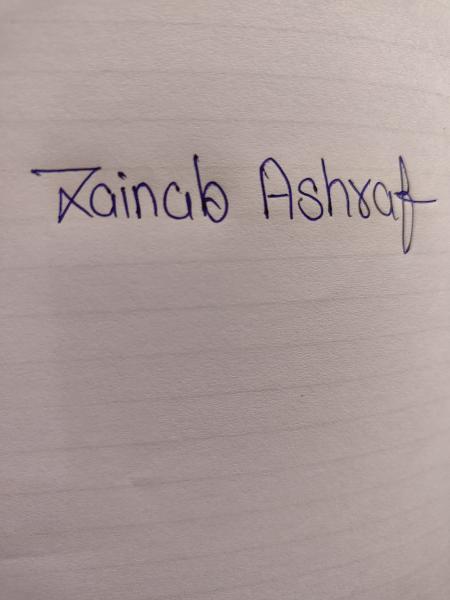 Zainab Ashraf